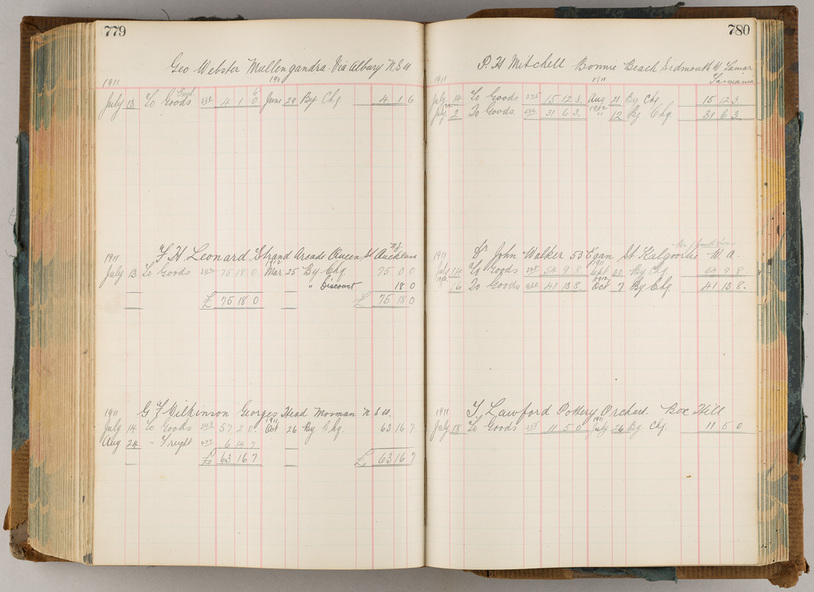 779
Geo Webster Mullengandra Via Albury N S W
1911
July 13 To Goods 4 1 6 June 28 By Chq 4 1 6
F H Leonard Strand Arcade Queen St Auckland
1911
July 13 To Goods 75 18 0 Mar 25 By Chq 75 0 0
" Discount 18 0
£ 75 18 0 75 18 0
G F Wilkinson Georges Head Mosman N S W
1911
July 14 To Goods 57 2 0 Oct 26 By Chq. 63 16 7
Aug 24 " Freight 6 14 7
£ 63 16 7 £ 63 16 7
780
P. H Mitchell Bonnie Beach Sidmouth W Tamar
Tasmania
1911
July 14 To Goods 15 12 3 Aug 21 By Chq 15 12 3
July 2 To Goods 31 6 3 12 By Chq 31 6 3
Dr John Walker 55 Egan St Kalgoorlie W A
1911
July 14 To Goods 54 9 8 Sept 22 By Chq 54 9 8
16 To Goods 41 13 8 Oct 7 By Chq 41 13 8
T Lawford Pottery Orchard Box Hill
1911
July 18 To Goods 11 5 0 July 26 By Chq 11 5 0